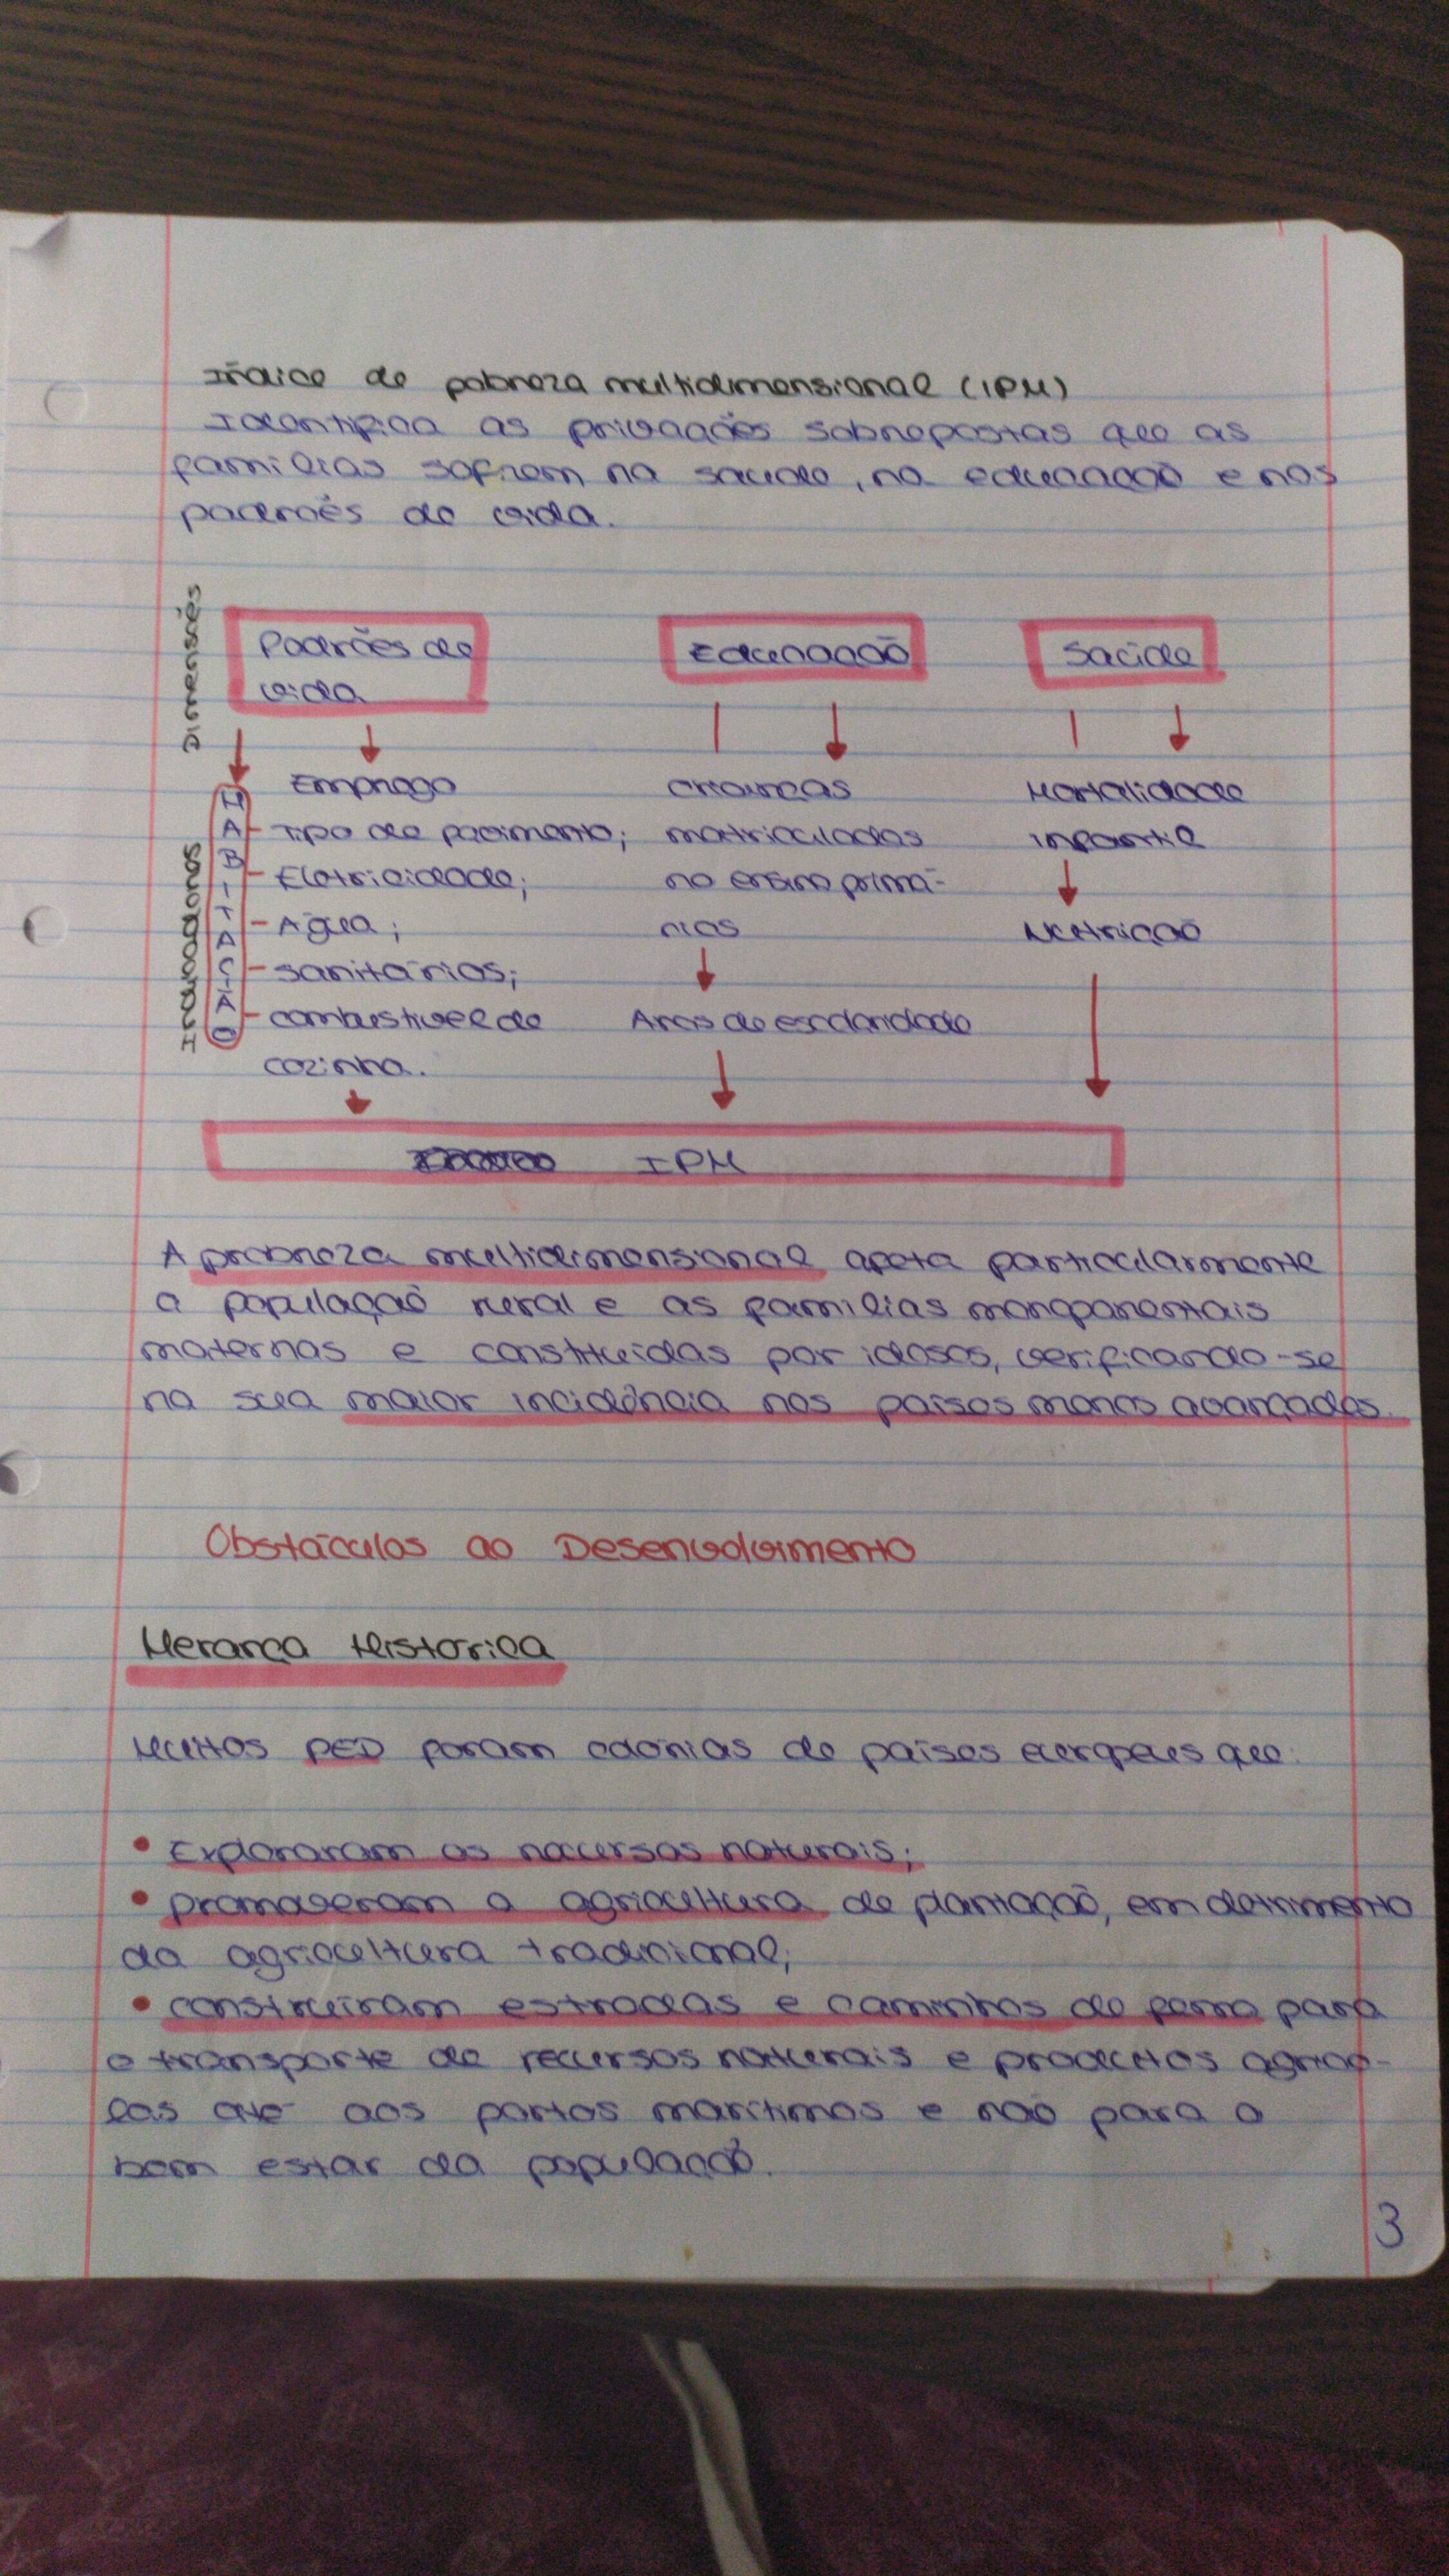 Índice de pobreza multidimensional (IPM)
Identifica as privações sobrepostas que as
famílias sofrem na saúde, na educação e nos
padroés de vida.
Dimensoés
Padrões de
vida
Educação
Saúde
Indicadores
HABITAÇÃO
Emprego
- Tipo de pavimento;
- Eletricidade;
- Água;
- sanitários;
- combustível de
cozinha.
crianças
matriculadas
no ensino primá-
rios
Anos de escolaridade
Mortalidade
infantil
Nutrição
IPM
A probreza multidimensional afeta particularmente
a população rural e as famílias monoparentais
maternas e constituídas por idosos, verificando-se
na sua maior incidência nos países menos avançados.
Obstáculos ao Desenvolvimento
Herança Histórica
Muitos PED foram colónias de países europeus que:
• Exploraram os recursos naturais;
• promoveram a agricultura de plantação, em detrimento
da agricultura tradicional;
• construíram estradas e caminhos de ferro para
o transporte de recursos naturais e produtos agríco-
las até aos portos marítimos e não para o
bem estar da população.
3